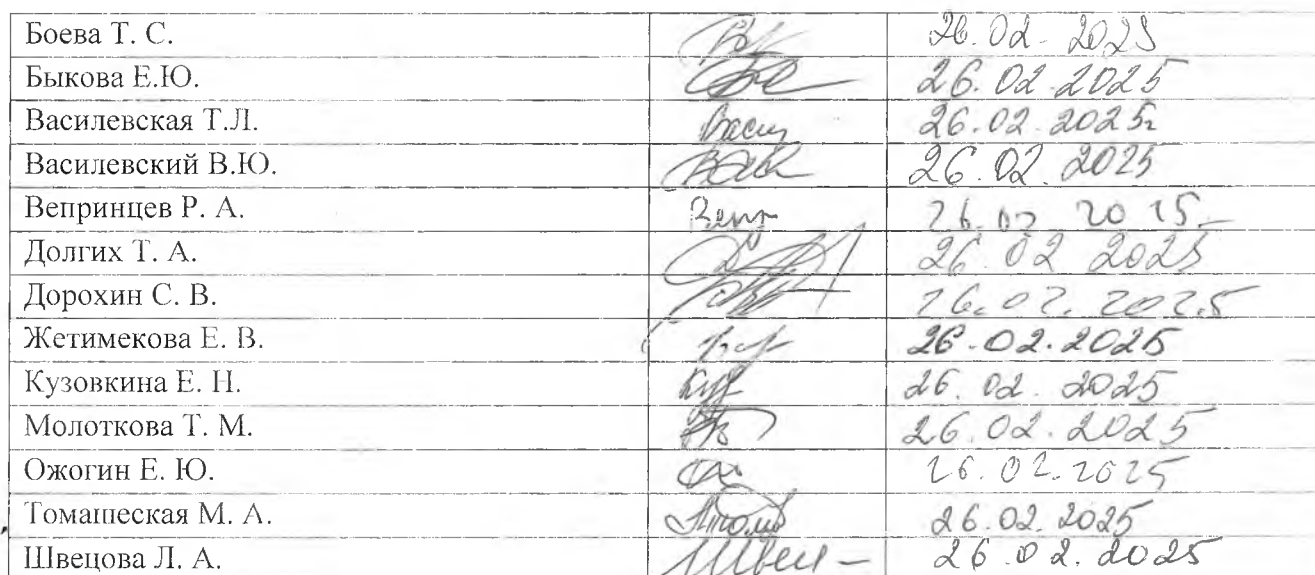 Боева Т. С. 26.02.2025
Быкова Е.Ю. 26.02.2025
Василевская Т.Л. Васил 26.02.2025г
Василевский В.Ю. 26.02.2025
Вепринцев Р. А. Вепр 26.02 2025
Долгих Т. А. 26.02 2025
Дорохин С. В. 26.02.2025
Жетимекова Е. В. 26.02.2025
Кузовкина Е. Н. 26.02.2025
Молоткова Т. М. 26.02.2025
Ожогин Е. Ю. 26.02.2025
Томашеская М. А. 26.02.2025
Швецова Л. А. 26.02.2025